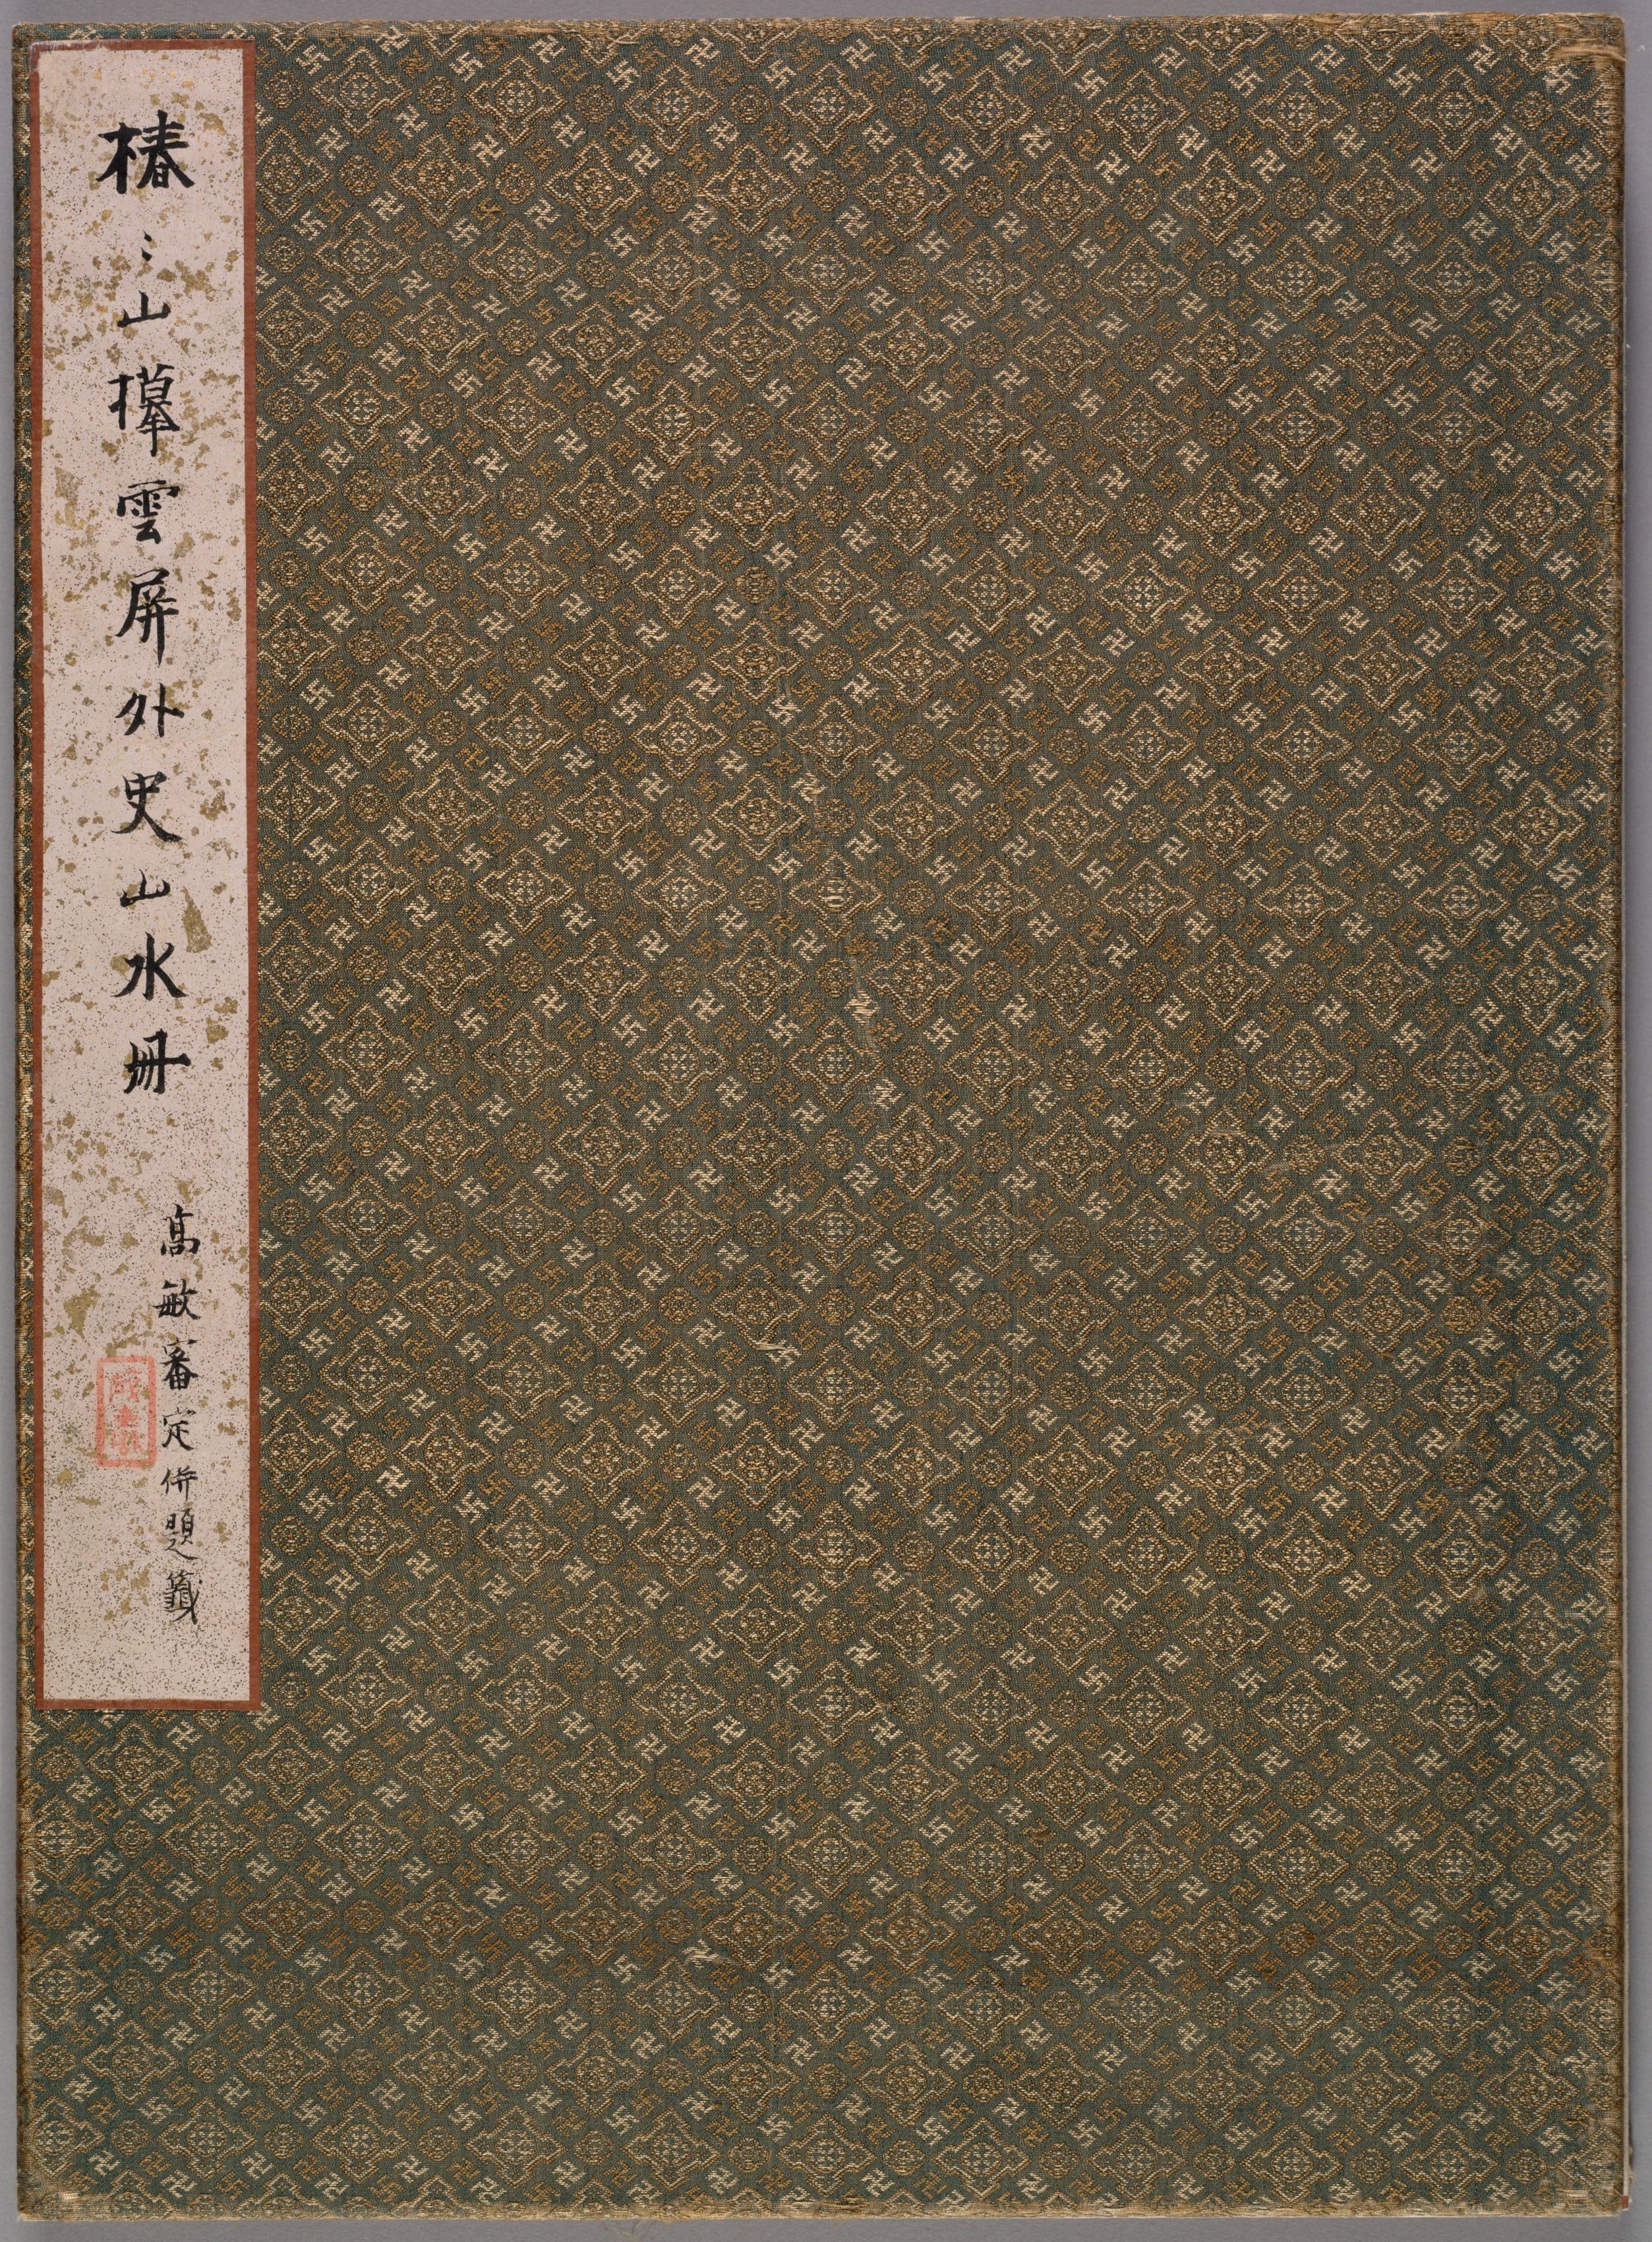 椿〻山摹雲屏外史山水冊
高敏審定併題籤